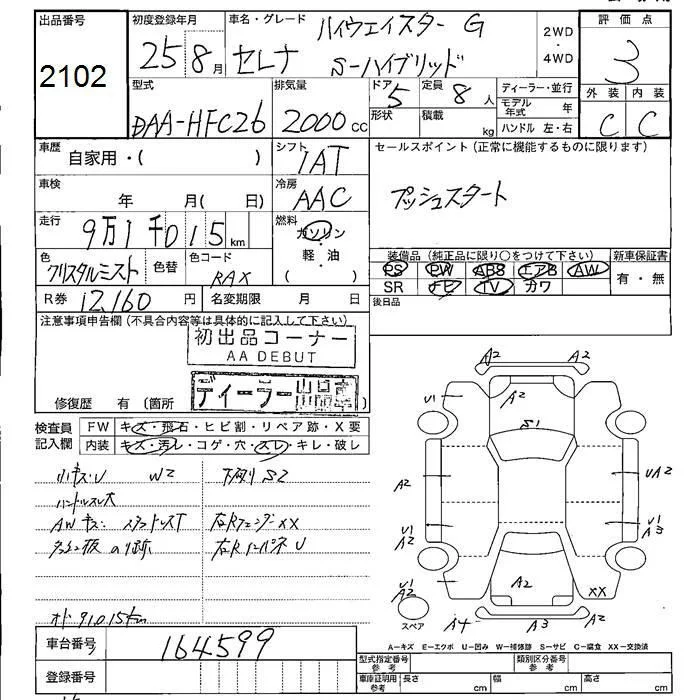 出品番号
2102
初度登録年月
25 8月
車名・グレード
ハイウェイスター G
セレナ S-ハイブリッド
2WD
・
4WD
評価点
3
外装 内装
C C
型式
DAA-HFC26
排気量
2000cc
ドア 5
形状
定員 8人
積載 kg
ディーラー・並行
モデル年式 年
ハンドル 左・右
車歴
自家用・( )
シフト
IAT
セールスポイント(正常に機能するものに限ります)
プッシュスタート
車検
年 月( 日)
冷房
AAC
走行
9万1千015km
燃料
ガソリン
・
軽・油
( )
色
クリスタルミスト
色替
色コード
RAX
装備品(純正品に限り○をつけて下さい)
PS PW ABS エアB AW
SR ナビ TV カワ
新車保証書
有・無
後日品
R券 12,160円
名変期限 月 日
注意事項申告欄(不具合内容等は具体的に記入して下さい)
初出品コーナー
AA DEBUT
ディーラー
修復歴 有(箇所
検査員記入欄
FW キズ・飛石・ヒビ割・リペア跡・X要
内装 キズ・汚レ・コゲ・穴・スレ・キレ・破レ
小キズ・U W2
下廻り S2
ハンドルスレ大
AWキズ
右Rフェンダー XX
右Rインパネ U
91,015km
A2 A2
U1 A2
S1
A2 UA2
U1 A2 U1 A3
U1 A2 A2 XX
スペア A4 A3 A2
A-キズ E-エクボ U-凹み W-補修跡 S-サビ C-腐食 XX-交換済
車台番号
164599
登録番号
型式指定番号
参考
類別区分番号
参考
車庫証明用
参考
長さ cm 幅 cm 高さ cm